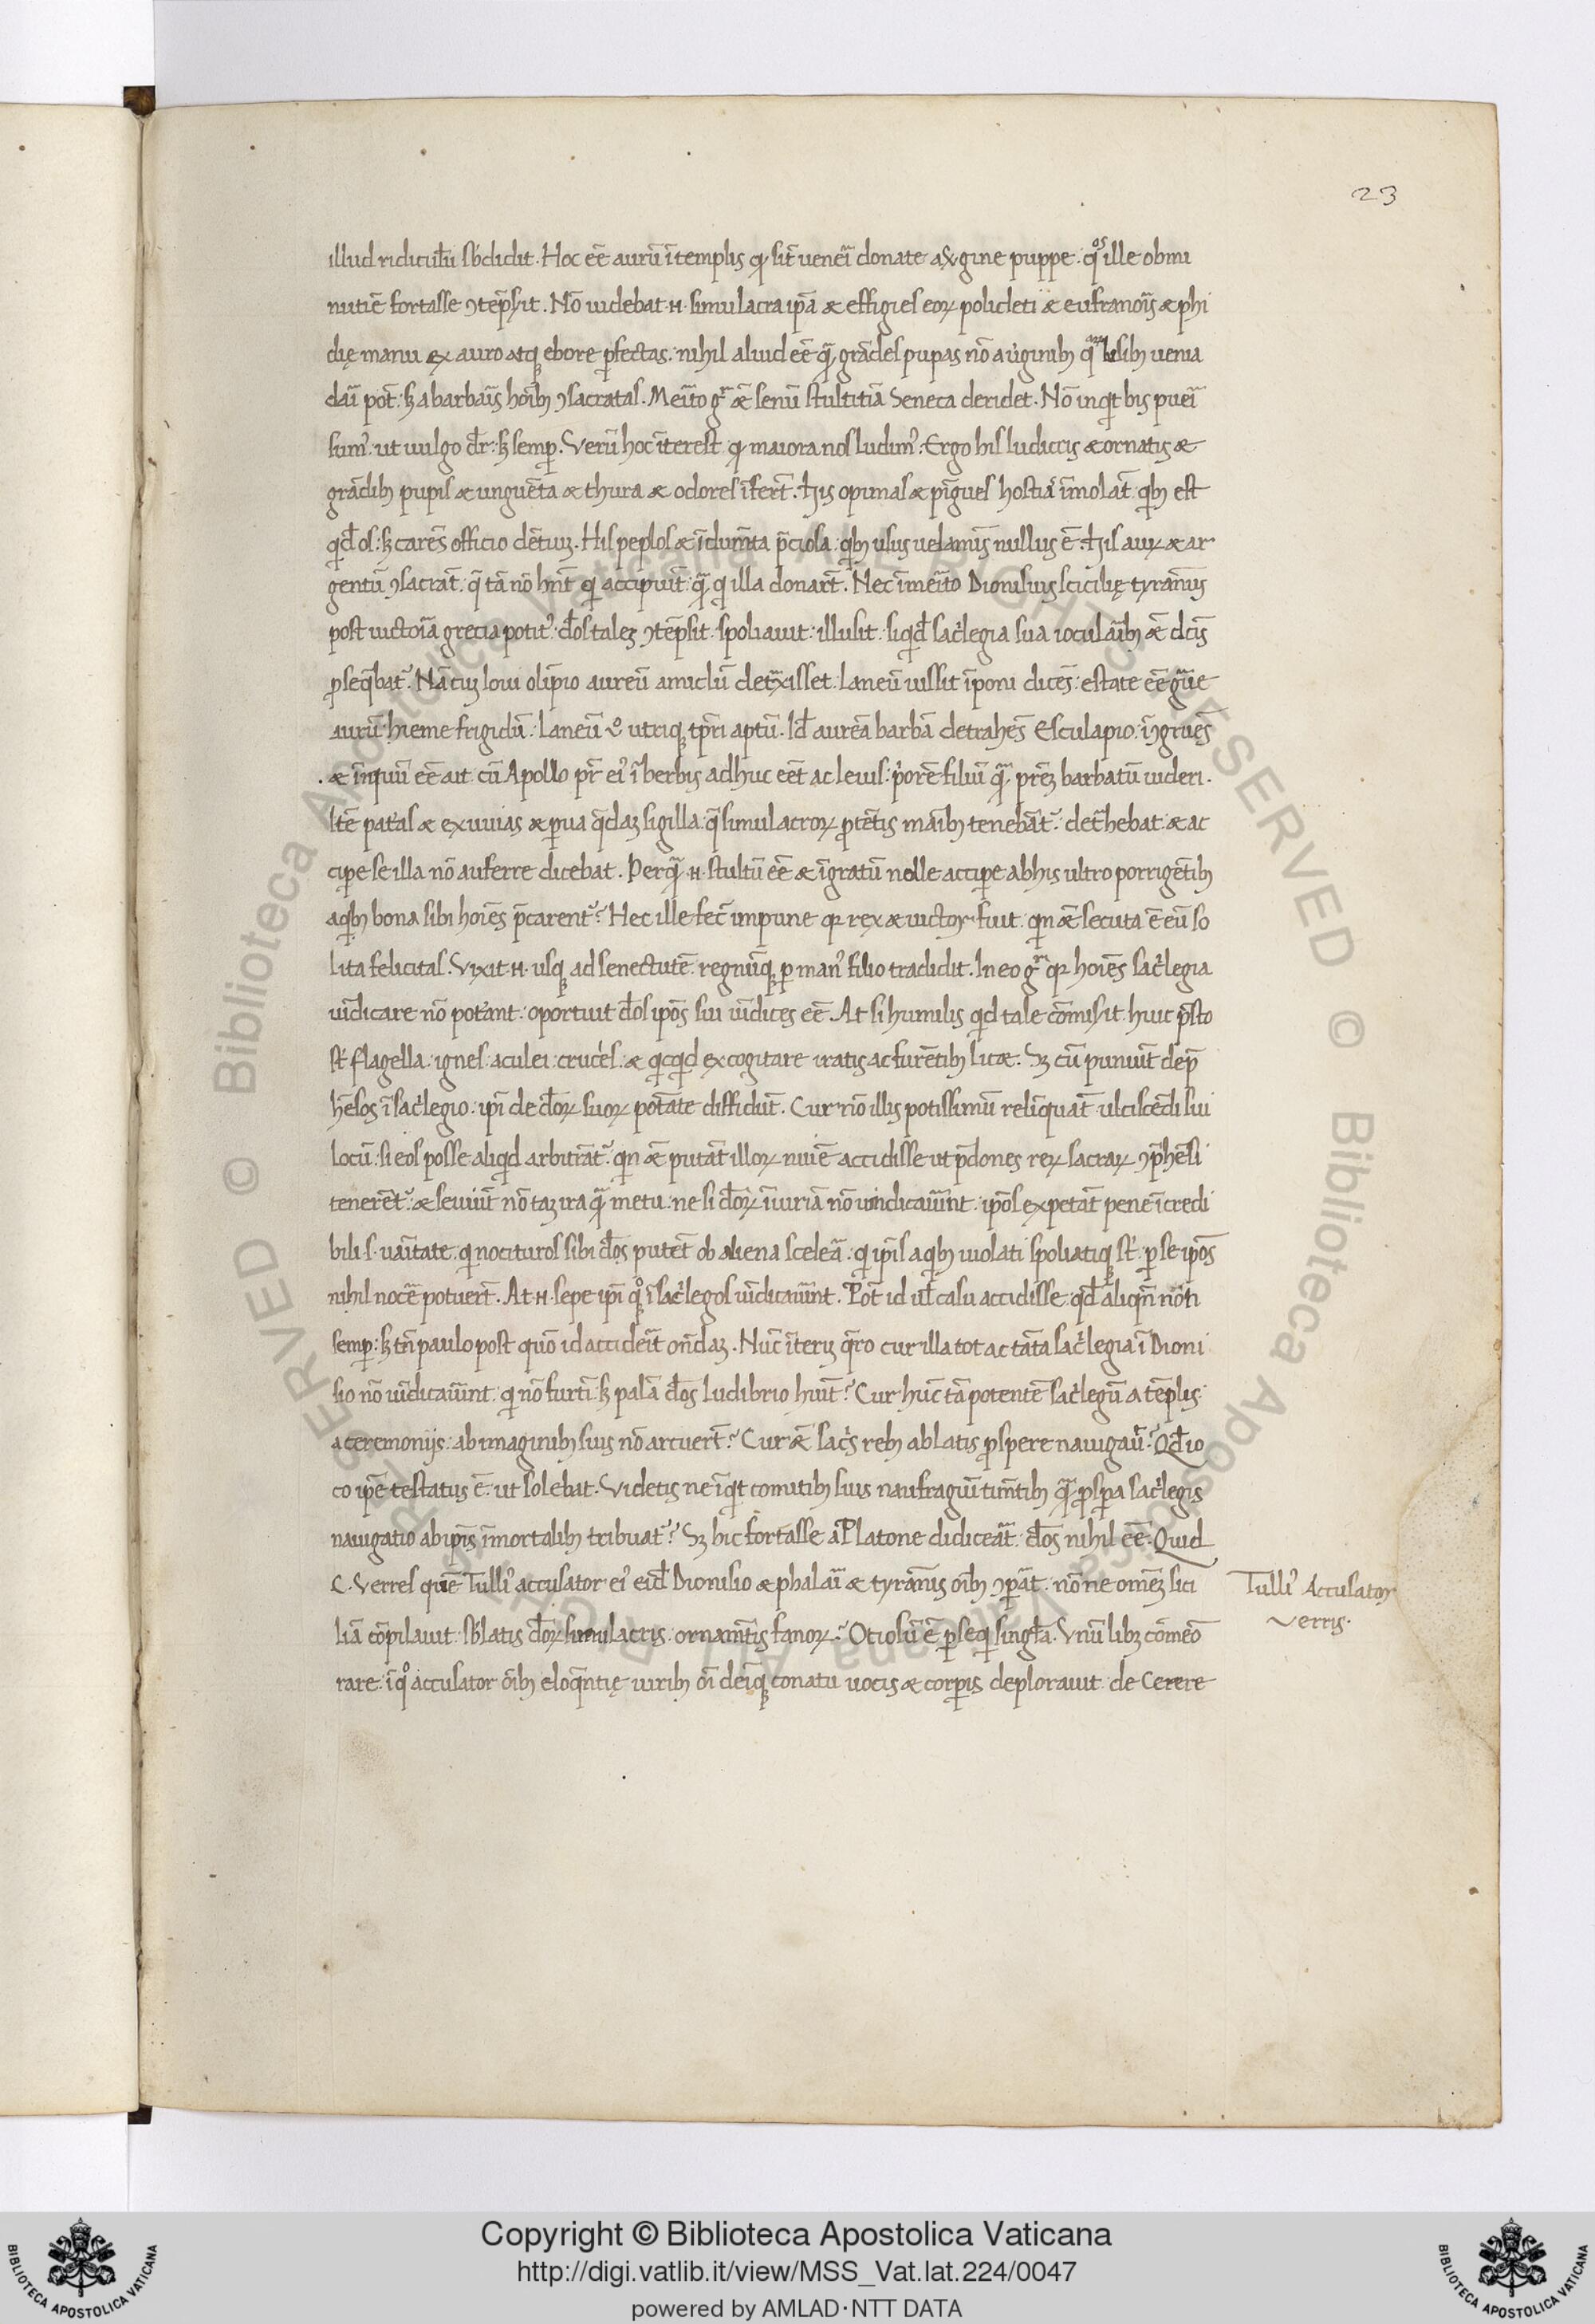 23
illud ridiculū sbdidit. Hoc eē aurū ī templis qꝫ sīt venerī donate a ꝟgine puppe. q̊s ille obmi
nutiē fortasse ꝯtēpsit. Nō uidebat .n. simulacra ip̄a & effigies eoꝝ policleti & eufranoris & phi
dię manu ex auro atqꝫ ebore ꝑfectas. nihil aliud eē q̄ grādes pupas nō a uirginibꝫ
dari pōt. sꝫ a barbatis hoībꝫ ꝯsacratas. Merito gͥ & senū stultitiā Seneca deridet. Nō inqt bis pueri
sumꝰ. ut vulgo dr̄: sꝫ semꝑ. Verū hoc īterest qꝫ maiora nos ludimꝰ. Ergo his ludicris & ornatis &
grādibꝫ pupis & unguēta & thura & odores īferūt. His opimas & pīgues hostias īmolāt. qbꝫ est
qd̄ os: sꝫ carēs officio dētium. His peplos & īdumēta p̄ciosa. qbꝫ usus uelaminis nullus ē. His auꝝ & ar
gentū ꝯsacrāt. q̄ tā nō hn̄t qi accipiūt. q̄ qi illa donarūt. Nec īmerito Dionisius scicilię tyrannus
post uictoriā grecia potitꝰ. dōs tales ꝯtēpsit. spoliauit. illusit. siqd̄ sacͥlegia sua iocularibꝫ & dc̄is
ꝓseqbatur. Nā cū Ioui olīpio aureū amiclū detraxisset. laneū iussit īponi dicēs. estate eē graue
aurū. hieme frigidū. laneū ꝟo utriqꝫ tp̄ri aptū. Id̄ aureā barbā detrahēs Esculapio. īꝯgruēs
& iniquū eē ait cū Apollo pr̄ eiꝰ īberbis adhuc eēt ac leuis: pͥorē filiū q̄ prēꝫ barbatū uideri.
Itē pat͛as & exuuias & ꝑua q̄daꝫ sigilla. q̄ simulacroꝝ ꝓtētis manibꝫ tenebāt̄. det͛hebat & ac
cipe se illa nō auferre dicebat. Perq̄ .n. stultū eē & īgratū nolle acciꝑe ab his ultro porrigētibꝫ
a qbꝫ bona sibi hoīes p̄carent̄? Hec ille fecit impune qꝛ rex & uictor fuit. qn & secuta ē eū so
lita felicitas. Vixit .n. usqꝫ ad senectutē. regnūqꝫ ꝑ manꝰ filio tradidit. In eo gͥ qꝛ hoīes sacͥlegia
uīdicare nō pot͛ant. oportuit dōs ipōs sui uīdices eē. At si humilis qd tale cōmisit. huic p̄sto
st̄ flagella. ignes. aculei. cruces. & qcqd excogitare iratis ac furētibꝫ licet. Sꝫ cū puniūt dep̄
hēsos ī sacͥlegio. ipi de dōꝝ suoꝝ potestate diffidūt. Cur nō illis potissimū relīquāt ulciscēdi sui
locū. si eos posse aliqd arbitrāt̄. qn & putāt illoꝝ numīe accidisse ut p̄dones reꝝ sacraꝝ ꝯp̄hēsi
tenerēt̄. & seuiūt nō taꝫ ira q̄ metu. ne si dōꝝ īiuriā nō uindicauerint. ipōs expetat pene īcredi
bili s. uanitate. qi nocituros sibi dōs putēt ob aliena scelera. qi ipīs a qbꝫ uiolati spoliatiqꝫ st̄. ꝑ se ipōs
nihil nocere potuert̄. At .n. sepe ipi q̊qꝫ ī sacͥlegos uīdicauerūt. Pōt id ul̄ casu accidisse. qd̄ aliqn̄ non
semꝑ: sꝫ tn̄ paulo post quō id acciderit ondaꝫ. Nūc īterꝫ q̄ro cur illa tot ac tāta sacͥlegia ī Dioni
sio nō uīdicauerint. qi nō furtī sꝫ palā dōs ludibrio huit̄? Cur hūc tā potentē sacͥlegū a tēplis
a ceremonijs. ab imaginibꝫ suis nō arcuerūt? Cur & sacͥs rebꝫ ablatis ꝓspere nauigauit? Qd̄ io
co ipē testatus ē. ut solebat. Videtis ne īqt comitibꝫ suis naufragiū timētibꝫ q̄ ꝓspera sacͥlegis
nauigatio ab ipīs īmortalibꝫ tribuat̄? Sꝫ hic fortasse a Platone didicerāt. dōs nihil eē. Quid
C. Verres quē Tulliꝰ accusator eiꝰ eid̄ Dionisio & phalari & tyrānis oībꝫ ꝯꝑat. nōne omnēꝫ sici
liā cōpilauit. sblatis dōꝝ simulacris. ornamētis fanoꝝ? Otiosū ē ꝑseqi singl̄a. Vnū libꝫ cōmemo
rare. ī q̊ accusator oībꝫ eloqntię uiribꝫ oī deniqꝫ conatu uocis & corꝑis deplorauit. de Cerere
Tulliꝰ Accusator
Verris.
Copyright © Biblioteca Apostolica Vaticana
http://digi.vatlib.it/view/MSS_Vat.lat.224/0047
powered by AMLAD·NTT DATA